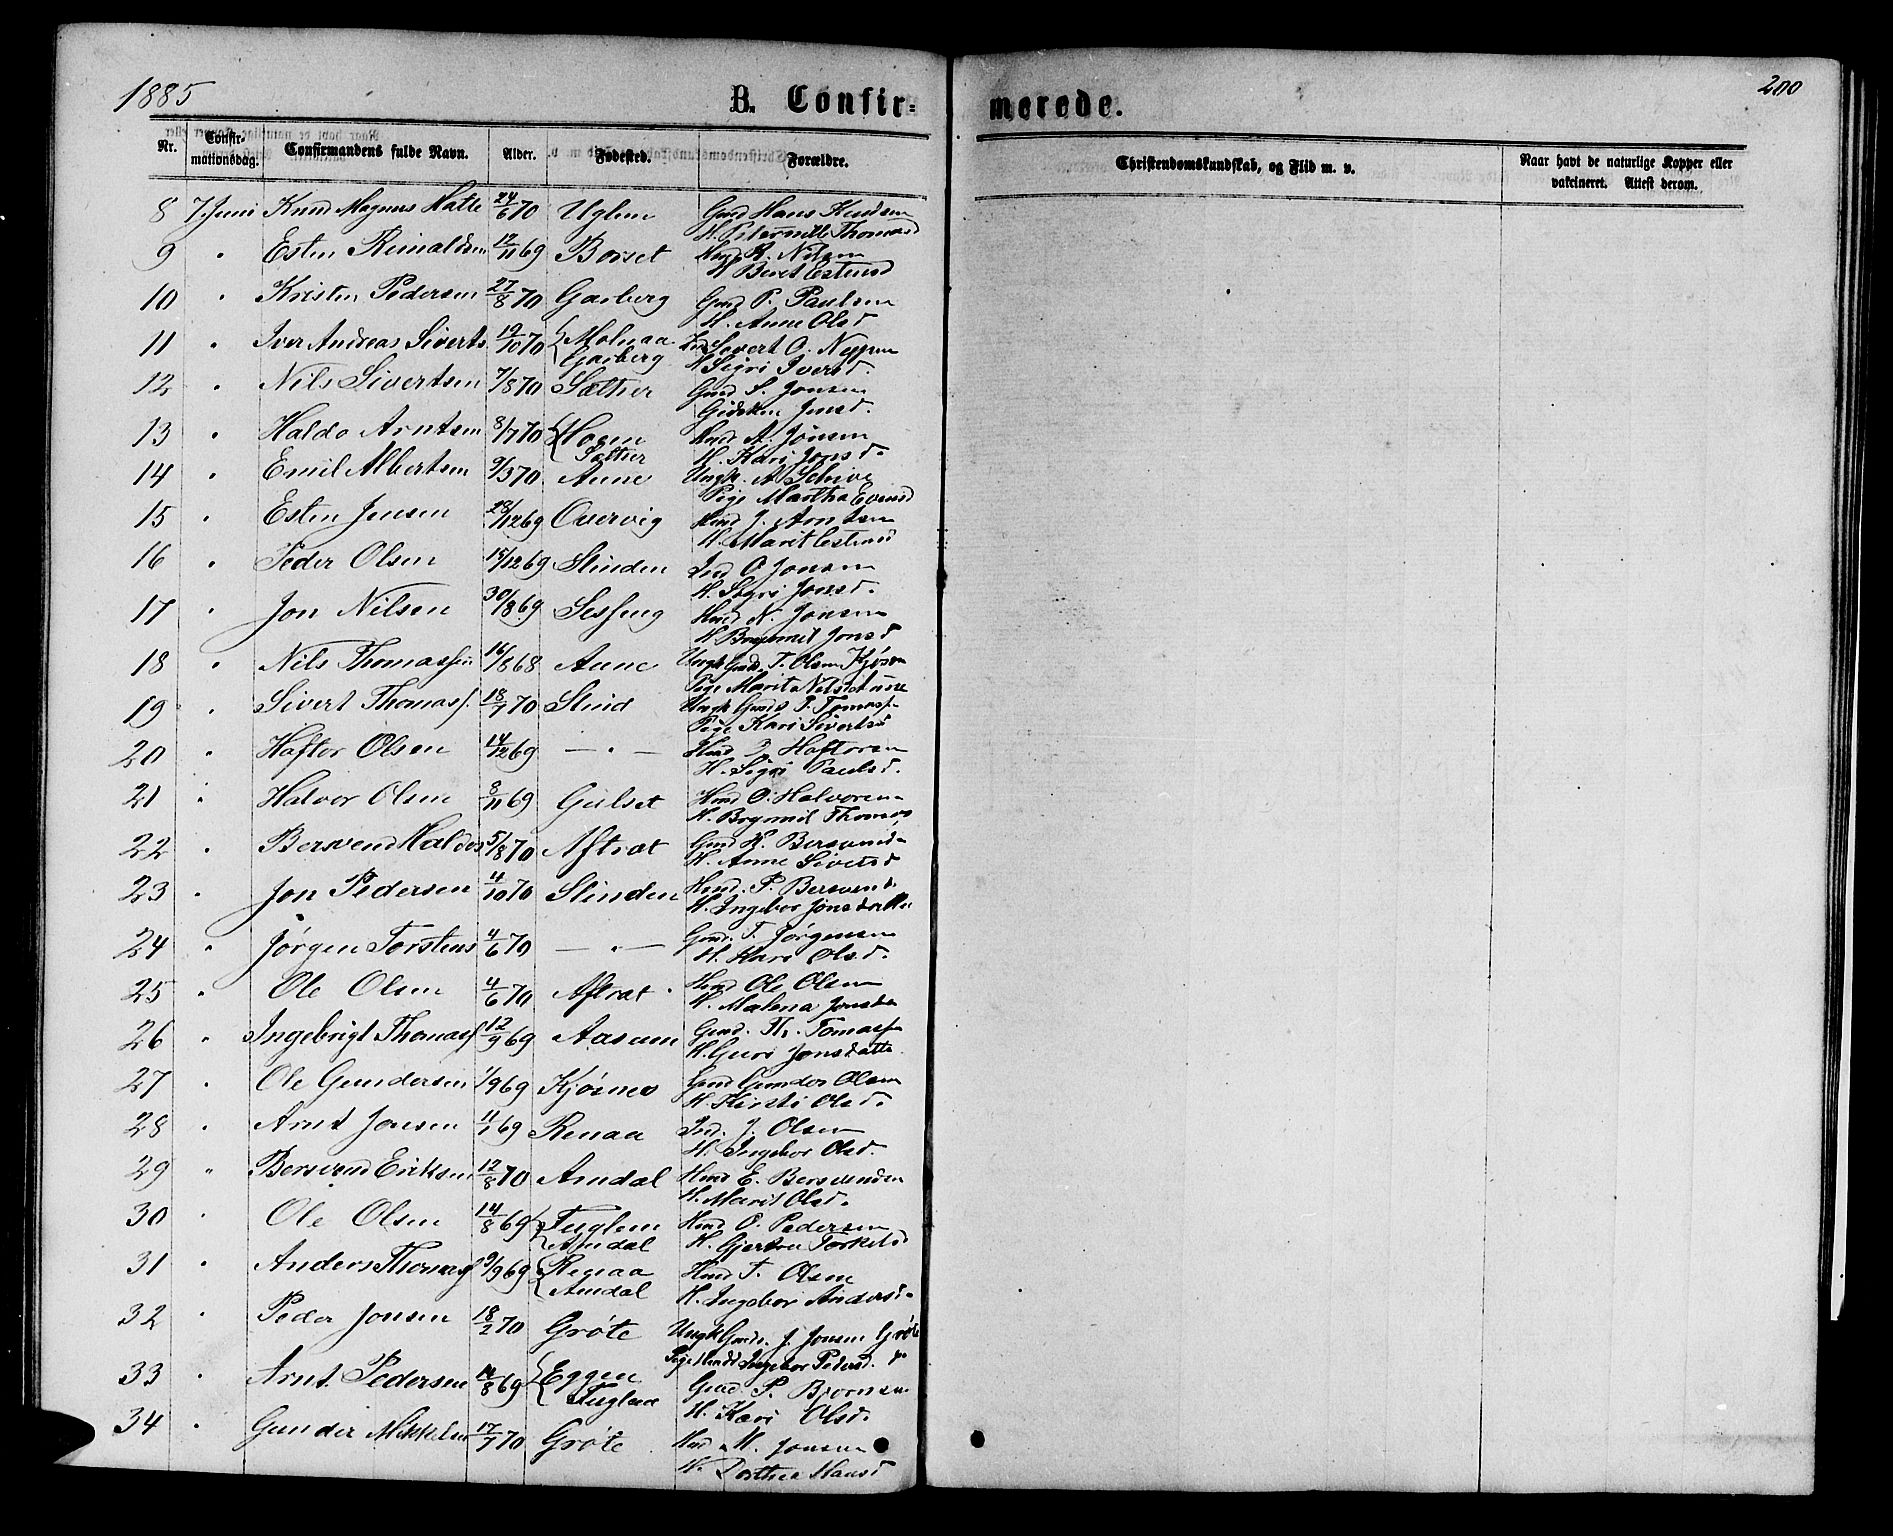 1885
B. Confirmerede.
200
Nr. Confirmationsdag. Confirmandens fulde Navn. Alder. Fødested. Forældre. Christendomskundskab, og Flid m. v. Naar havt de naturlige Kopper eller vakcineret. Attest derom.
8 7 Juni Knud Magnus Hatle 24/6 70 Uglem Gmd Hans Knudsen
H. Thomasd
9 " Esten Reinaldsen 12/11 69 Borset Hmd R. Nilsen
H Beret Estensd
10 " Kristen Pedersen 27/8 70 Garberg Gmd P. Paulsen
H. Anne Olsd
11 " Iver Andreas Siverts 19/10 70 Molnaa Sivert O. Neppen
Garberg H Sigri Iversd.
12 " Nils Sivertsen 7/8 70 Sætter Gmd S. Jonsen
Gidsken Jensd.
13 " Haldo Arntsen 8/7 70 Hoem Hmd A. Jonsen
Sætter H. Kari Jonsd.
14 " Emil Albertsen 9/3 70 Aune Ungk. A Schive
Pige Martha Evensd
15 " Esten Jensen 28/12 69 Overvig Hmd J. Arntsen
H. Marit Estensd
16 " Peder Olsen 15/12 69 Slinden Ind O Jonsen
H. Sigri Jonsd.
17 " Jon Nilsen 30/8 69 Sesseng Hmd N. Jonsen
H Jonsd
18 " Nils Thomassen 16/8 68 Aune Ungk Gmds T. Olsen
Pige Marit Nilsd Aune
19 " Sivert Thomass. 18/7 70 Slind Ungk Gmds T. Tomass
Pige Kari Sivertsd
20 " Haftor Olsen 14/12 69 — " — Hmd O Haftorsen
H. Sigri Paulsd.
21 " Halvor Olsen 8/11 69 Gulset Hmd O. Halvorsen
H. Thomas
22 " Bersvend Haldos 5/8 70 Aftret Gmd H. Bersvends
H. Anne Sivertsd
23 " Jon Pedersen 4/10 70 Slinden Hmd. P. Bersvends
H. Ingebor Jonsdatter
24 " Jørgen Torstens 4/6 70 — " — Gmd. T. Jørgensen
H. Kari Olsd.
25 " Ole Olsen 4/6 70 Aftret. Hmd Ole Olsen
H. Malena Jonsda
26 " Ingebrigt Thomass 12/9 69 Aasum Gmd. Th. Tomass
H. Guri Jonsdatte
27 " Ole Gundersen 1/9 69 Kjøsnes Gmd Gunder Olsen
H. Kirsti Olsd.
28 " Arnt Jonsen 11/1 69 Renaa Ind. J. Olsen
H. Ingebor Olsd.
29 " Bersvend Eriksen 12/8 70 Amdal Hmd E. Bersvendsen
H. Marit Olsd.
30 " Ole Olsen 14/8 69 Fuglem Hmd O. Pedersen
Amdal H. Gjertru Torkilsd
31 " Anders Thomass 9/9 69 Renaa Hmd T. Olsen
Amdal H. Ingebor Andersd.
32 " Peder Jonsen 18/2 70 Grøte Ungk Gmds. J. Jonsen Grøte
Pige Ingebor Pedersd.
33 " Arnt Pedersen 14/8 69 Eggen Gmd P. Bjørnsen
Fuglem H. Kari Olsd.
34 " Gunder Mikkelsen 17/7 70 Grøte Hmd M. Jonsen
H. Dorthea Hansd